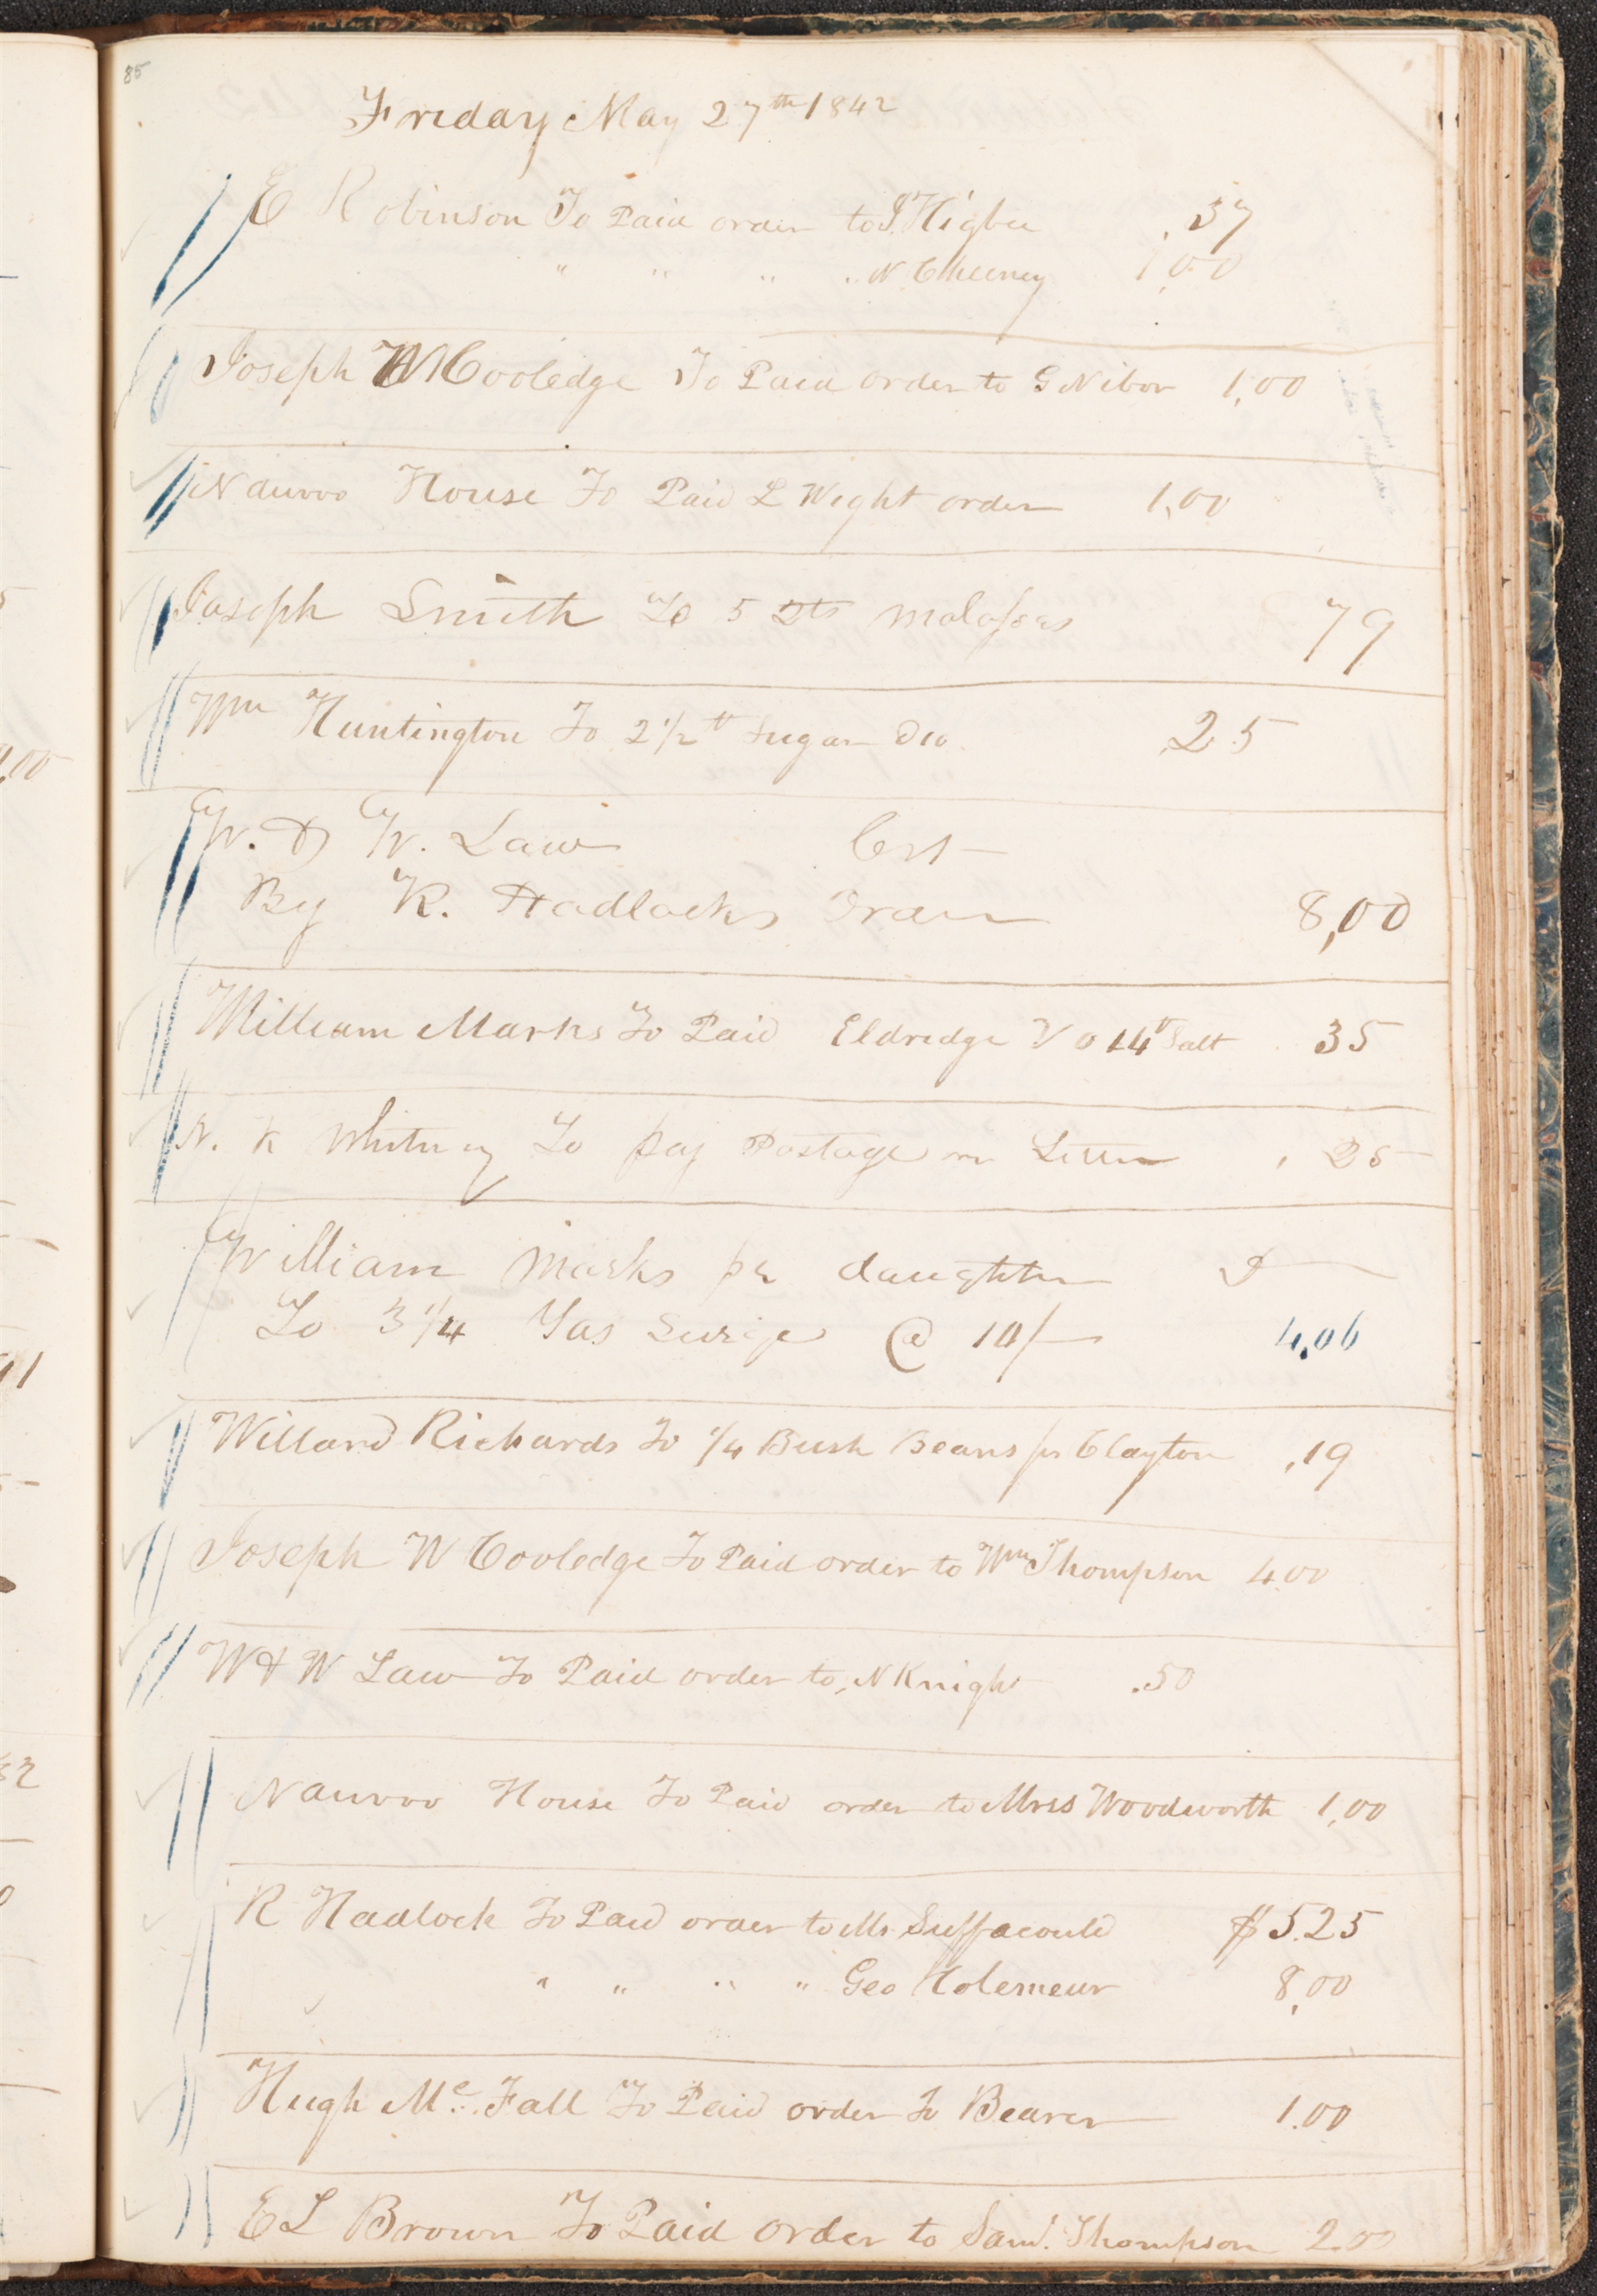 85
Friday May 27th 1842
E Robinson To Paid order to J Higbee .37
" " " " N Cheeney 1,00
Joseph W Cooledge To Paid order to G Nibor 1,00
Nauvoo House To Paid L Wight order 1,00
Joseph Smith To 5 Qts molasses 79
Wm Huntington To 2 1/2 lb Sugar 25
W. & W. Law Crt
By R. Hadlocks Draw 8,00
William Marks To Paid Eldredge 14 lb Salt 35
N. K Whitney To pay Postage on Letter , 25
William Marks pr daughter
To 3 1/4 Yds Serge @ 10/ 4,06
Willard Richards To 1/4 Bush Beans pr Clayton ,19
Joseph W Cooledge To Paid order to Wm Thompson 4.00
W & W Law To Paid order to N Knight .50
Nauvoo House To Paid order to Mrss Woodworth 1,00
R Hadlock To Paid order to Mr $5.25
" " " " Geo 8,00
Hugh Mc Fall To Paid order To Bearer 1.00
E L Brown To Paid order to Saml. Thompson 2.00